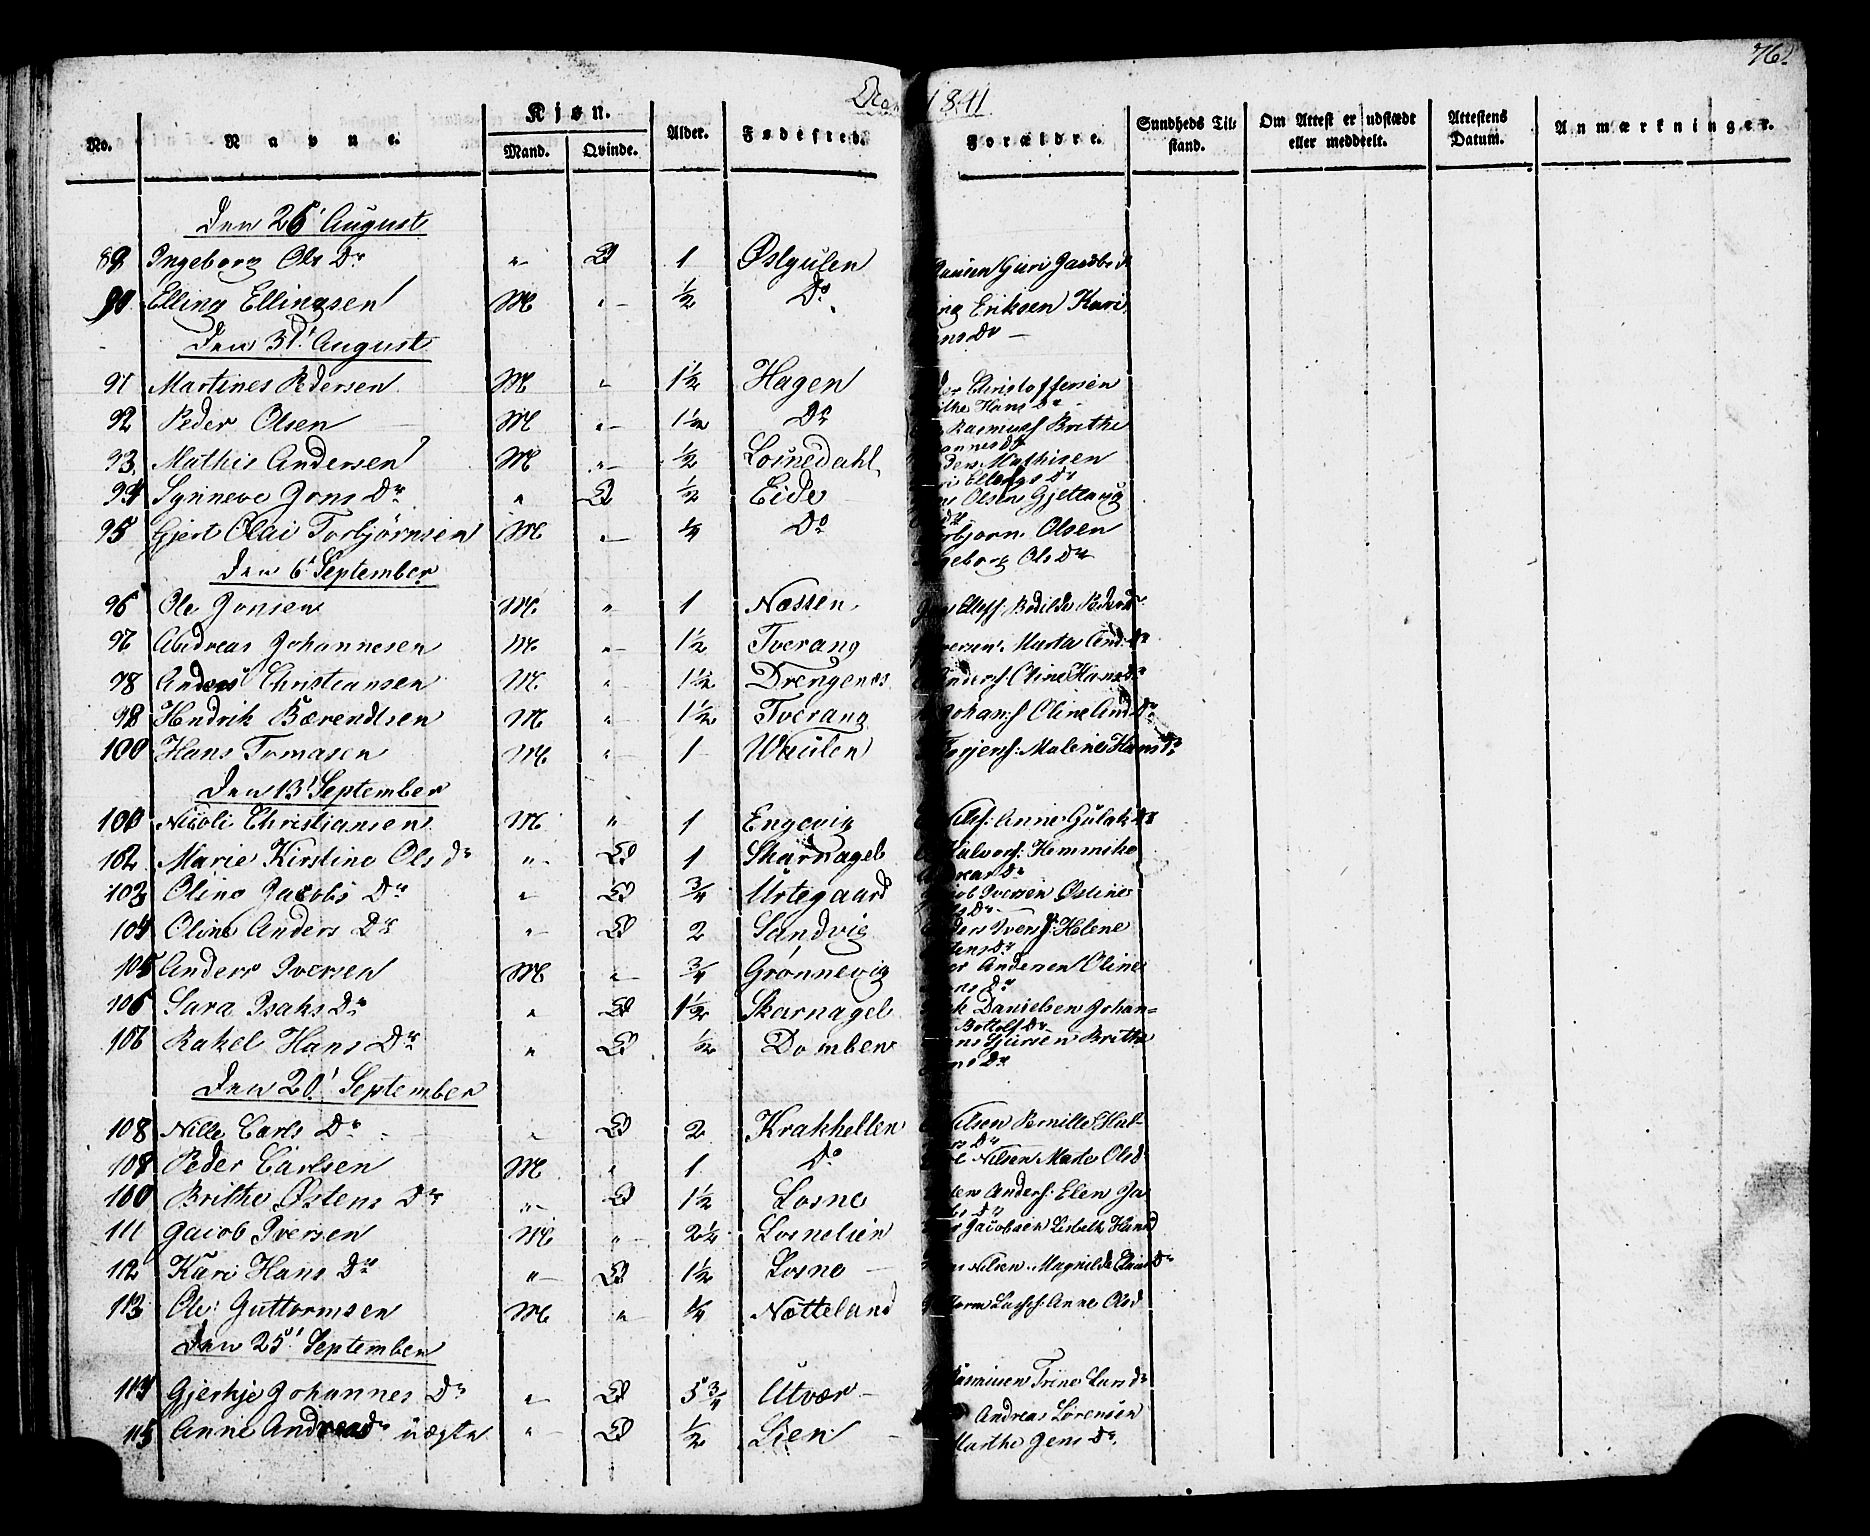 762
1841
No. Navne. Kjøn. Alder. Fødested. Forældre. Sundheds Tilstand. Om Attest er udstædt eller meddeelt. Attestens Datum. Anmærkninger.
Mand. Qvinde.
Den 26' August
89 Ingeborg Ols Dr „ Q 1 Østgulen Guri Jacobs
90 Elling Ellingsen M „ ½ Do. Eriksen Kari
Dr
Den 31' August
91 Martines Pedersen M „ 1½ Hagen Christoffersen
Hans Dr
92 Peder Olsen M „ 1½ Do Rasmuss Brithe
93 Mathis Andersen M „ ½ Losnedahl Mathisen
Dr
94 Synneve Jons Dr „ Q ½ Eide Olsen Gjetlaug
95 Gjert Olai Torbjörnsen M „ ¼ Do Olsen
Ols Dr
Den 6' September
96 Ole Jonsen M „ 1 Næssen Bodilde Peders
97 Andreas Johannesen M „ 1½ Tverang Marta And: Dr
98 Anders Christiansen M „ 1½ Drengenes Oline Hans Dr
99 Hendrik Bærendtsen M „ 1½ Tverang Oline And Dr
100 Hans Tomasen M „ 1 Waülen Malene Hans Dr
Den 13' September
101 Nicoli Christiansen M „ 1 Engevig Anne Gulak Dr
102 Marie Kirstine Ols dr „ Q 1 Skarnagel Halvors: Hemmike
Dr
103 Oline Jacobs Dr „ Q ¾ Urtegaard Iversen Østine
Dr
104 Oline Anders Dr „ Q 2 Sandvig Ivers: Helene
Dr
105 Anders Iversen M „ ¾ Grønnevig Andersen Oline
Dr
106 Sara Isaks Dr „ Q 1½ Skarnagel Danielsen Johan=
Bottolfs Dr
106 Rakel Hans Dr „ Q ½ Domben Brithe
Dr
Den 20' September
108 Nille Carls Dr „ Q 2 Krakhellen Pernille Hal-
Dr
109 Peder Carlsen M „ 1 Do Nilsen Marte Olsd
110 Brithe Østens Dr „ Q 1½ Losne Anders: Elen Ja
Dr
111 Jacob Iversen M „ 2¼ Losnelien Jacobsen Lisbeth Hans
112 Kari Hans Dr „ Q 1½ Losne Nilsen Magnilde Dr
113 Ole Guttormsen M „ ¼ Nætteland Anne Olsd
Den 25' September
114 Gjertje Johannes Dr „ Q 5¾ Utvær Rasmusen Trine Lars dr
115 Anne Andreasdr uægte „ Q ½ Lien Andreas Lørensen
Marthe Jens Dr.